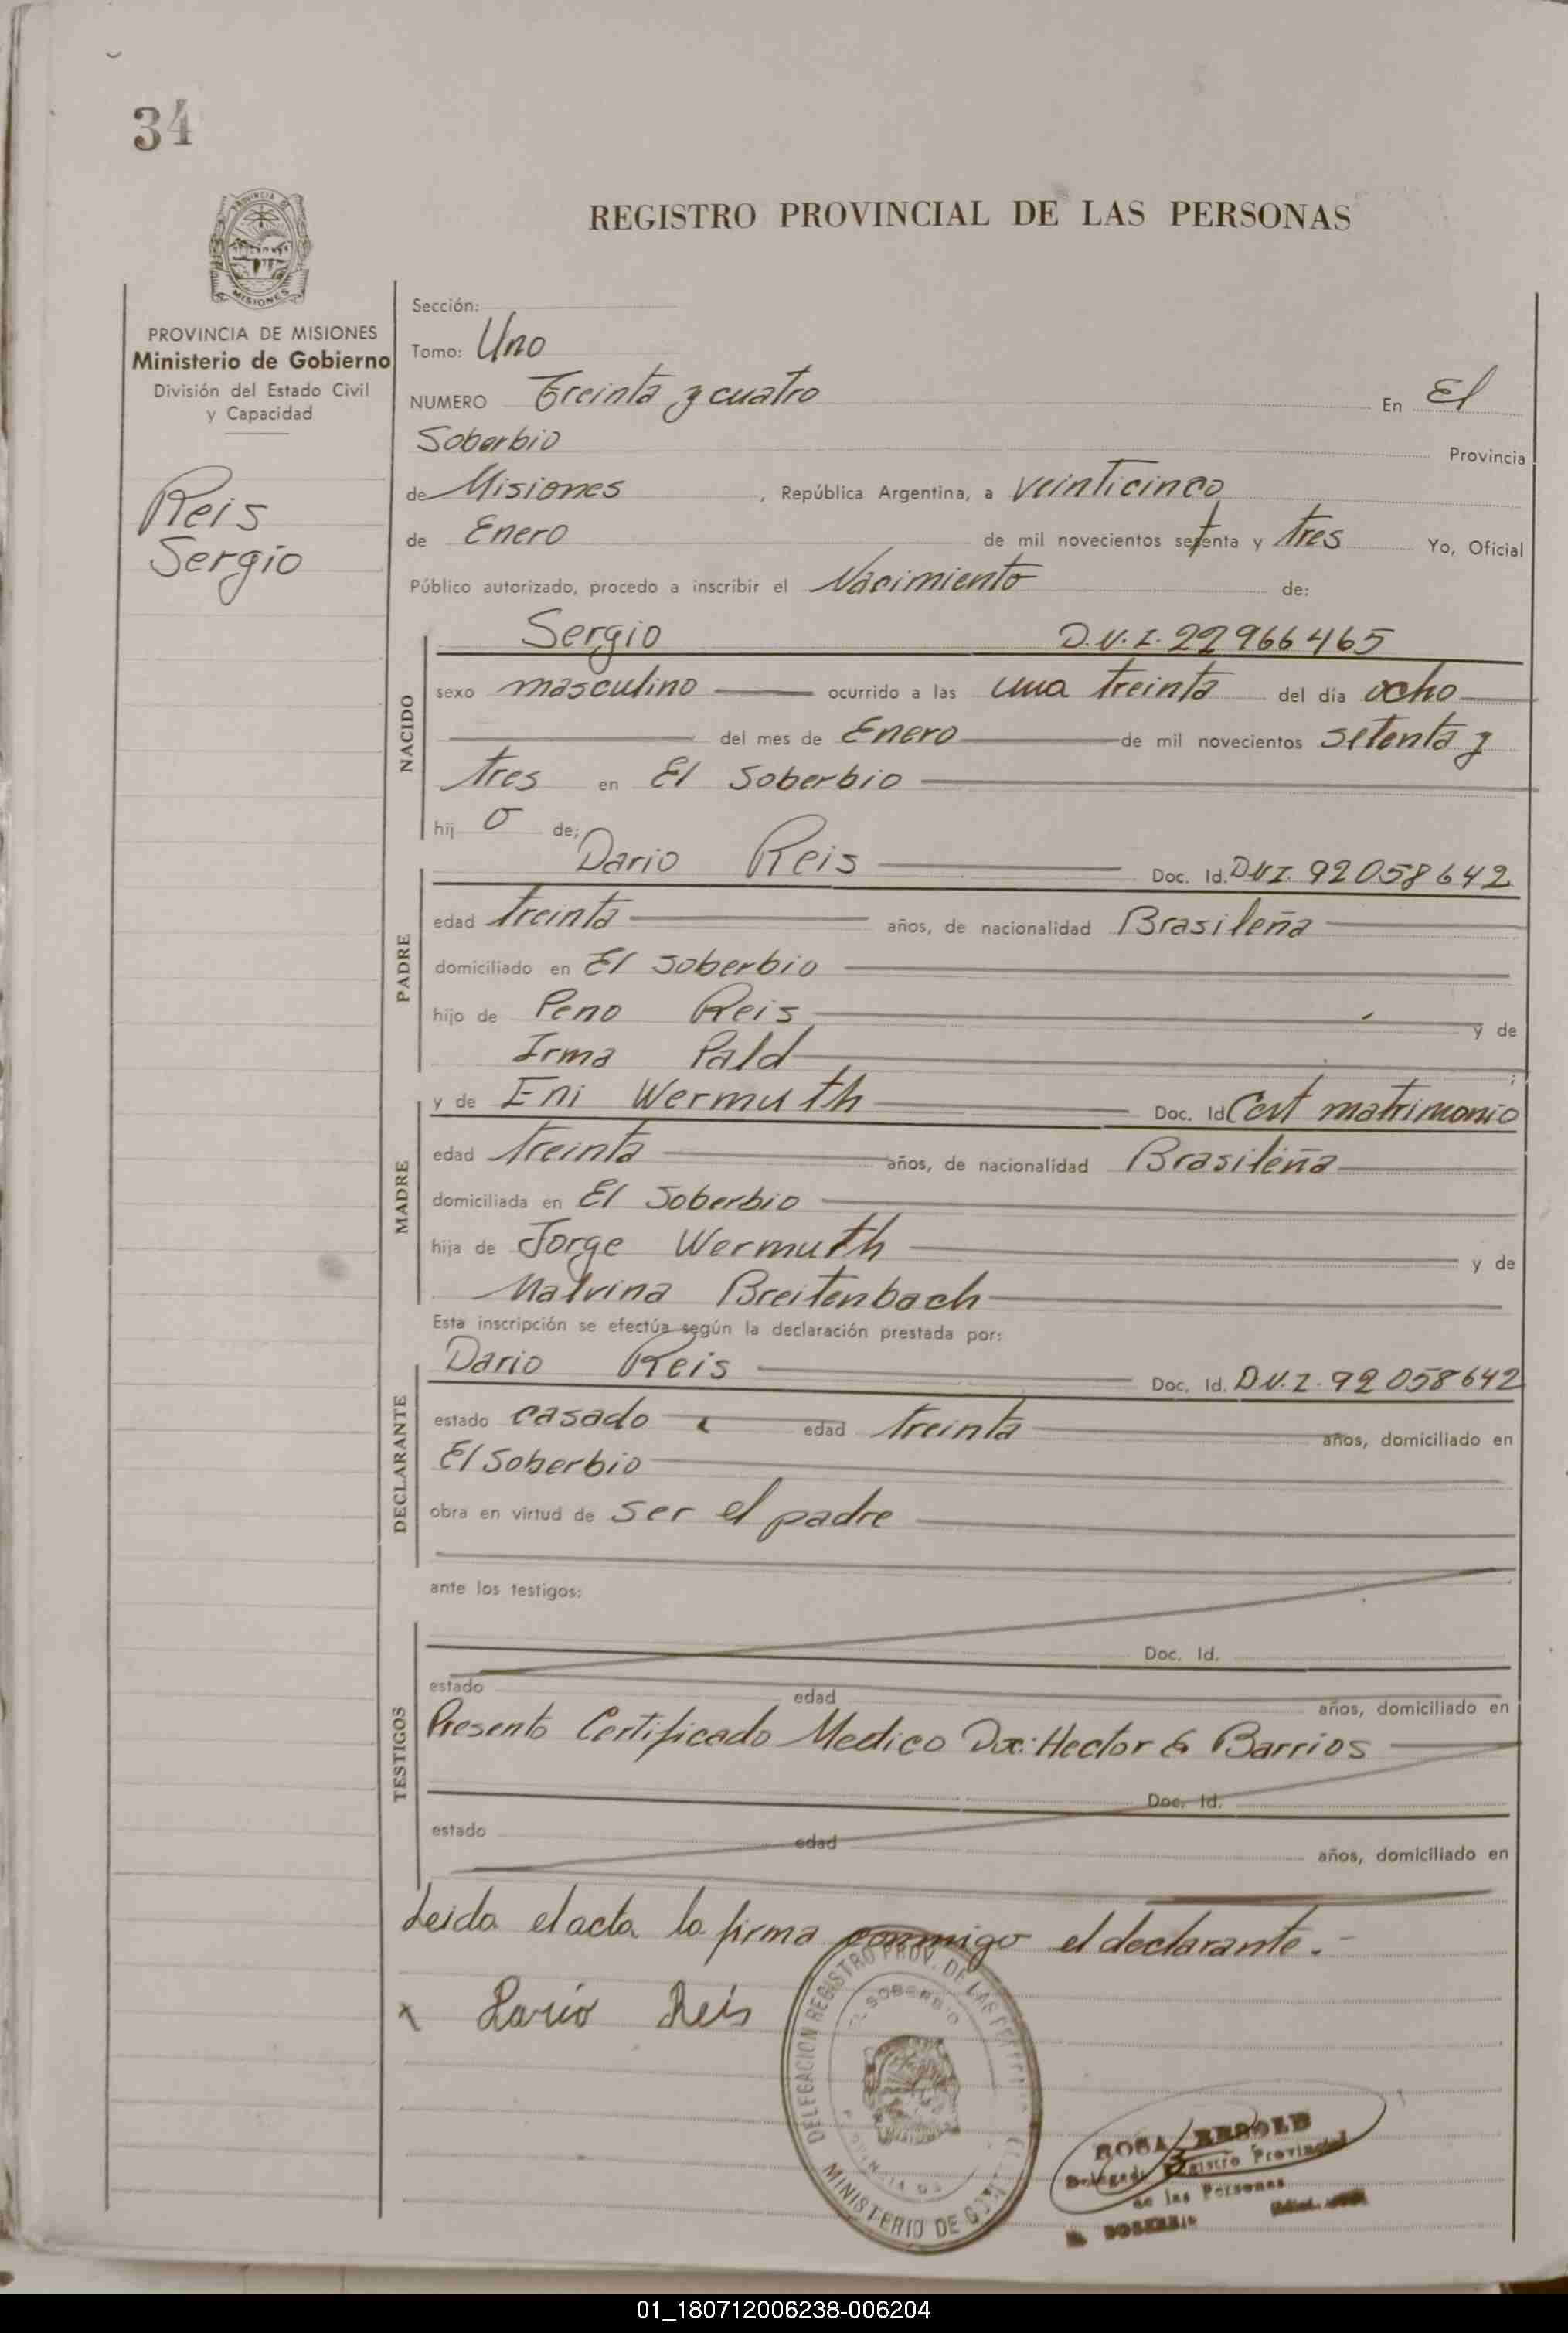 34
PROVINCIA DE
MISIONES
REGISTRO PROVINCIAL DE LAS PERSONAS
PROVINCIA DE MISIONES
Ministerio de Gobierno
División del Estado Civil
y Capacidad
Reis
Sergio
Sección:
Tomo: Uno
NUMERO Treinta y cuatro En El
Soberbio Provincia
de Misiones, República Argentina, a veinticinco
de Enero de mil novecientos setenta y tres Yo, Oficial
Público autorizado, procedo a inscribir el Nacimiento de:
NACIDO
Sergio D.N.I. 22966465
sexo masculino ocurrido a las una treinta del día ocho
del mes de Enero de mil novecientos setenta y
tres en El Soberbio
hij o de;
PADRE
Dario Reis Doc. Id. DNI. 92058642
edad treinta años, de nacionalidad Brasileña
domiciliado en El Soberbio
hijo de Peno Reis y de
Irma Pald ;
MADRE
y de Eni Wermuth Doc. Id Cert matrimonio
edad treinta años, de nacionalidad Brasileña
domiciliada en El Soberbio
hija de Jorge Wermuth y de
Malvina Breitenbach
Esta inscripción se efectúa según la declaración prestada por:
DECLARANTE
Dario Reis Doc. Id. D.N.I. 92058642
estado casado edad treinta años, domiciliado en
El Soberbio
obra en virtud de ser el padre
ante los testigos:
TESTIGOS
Doc. Id.
estado edad años, domiciliado en
Presento Certificado Medico Doc: Hector G Barrios
Doc. Id.
estado edad años, domiciliado en
Leida el acta la firma conmigo el declarante.-
x Dario Reis
DELEGACION REGISTRO PROV. DE LAS
EL SOBERBIO
MINISTERIO DE
ROSA
Registro Provincial
de las Personas
01_180712006238-006204